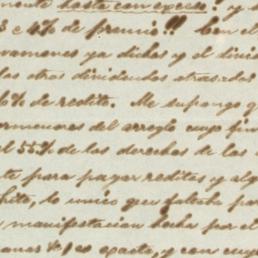 mente hasta con exceso! y
3 a 4% de premio!! Con el
vamenes ya dichos y el divi
las otras dividendos atrasados
6% de redito. Me supongo q
ormenores del arreglo cuyo fin
l 55% de los derechos de las
te para pagar reditos y alg
hito, lo unico que faltaba pa
manifestacion hecha por el
es exacta, y con cuy